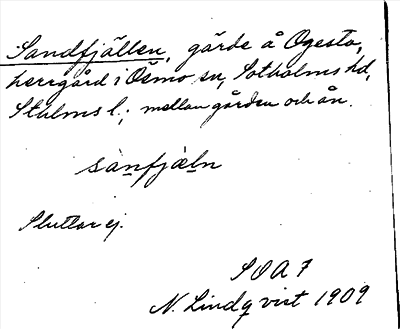 Sandfjällen, gärde å Ogesta,
herrgård i Ösmo sn, Sotholms hd,
Sthlms l.; mellan gården och ån.
sanfjæln
Sluttar ej.
SOA 7
N. Lindqvist 1909